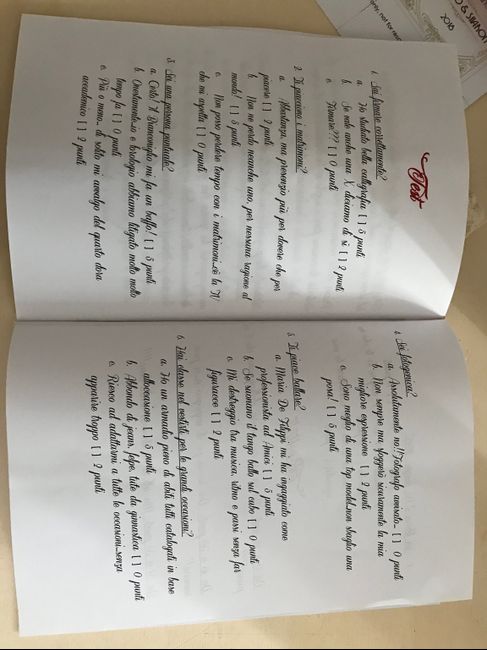 Test
1. Sai firmare correttamente?
a. Ho studiato bella calligrafia [ ] 5 punti
b. Se vale anche una X, diciamo di si [ ] 2 punti
c. Firmare??? [ ] 0 punti
2. Ti piacciono i matrimoni?
a. Abbastanza, ma presenzio più per dovere che per
piacere [ ] 2 punti
b. Non ne perdo neanche uno, per nessuna ragione al
mondo! [ ] 5 punti
c. Non posso perdere tempo con i matrimoni...c'è la TV
che mi aspetta [ ] 0 punti
3. Sei una persona puntuale?
a. Certo! Il Bianconiglio mi fa un baffo! [ ] 5 punti
b. Onestamente...io e l'orologio abbiamo litigato molto molto
tempo fa [ ] 0 punti
c. Più o meno... di solito mi avvalgo del quarto d'ora
accademico [ ] 2 punti
4. Sei fotogenico?
a. Assolutamente no!! Fotografo avvisato... [ ] 0 punti
b. Non sempre ma, sfoggerò sicuramente la mia
migliore espressione [ ] 2 punti
c. Sono meglio di una top model...non sbaglio una
posa! [ ] 5 punti
5. Ti piace ballare?
a. Maria De Filippi mi ha ingaggiato come
professionista ad Amici [ ] 5 punti
b. Se suonano il tango ballo sul cubo [ ] 0 punti
c. Mi destreggio tra musica, ritmo e passi senza far
figuracce [ ] 2 punti
6. Hai classe nel vestirti per le grandi occasioni?
a. Ho un armadio pieno di abiti tutti catalogati in base
all'occasione [ ] 5 punti
b. Abbondo di jeans, felpe, tute da ginnastica [ ] 0 punti
c. Riesco ad adattarmi a tutte le occasioni...senza
apparire troppo [ ] 2 punti
2018